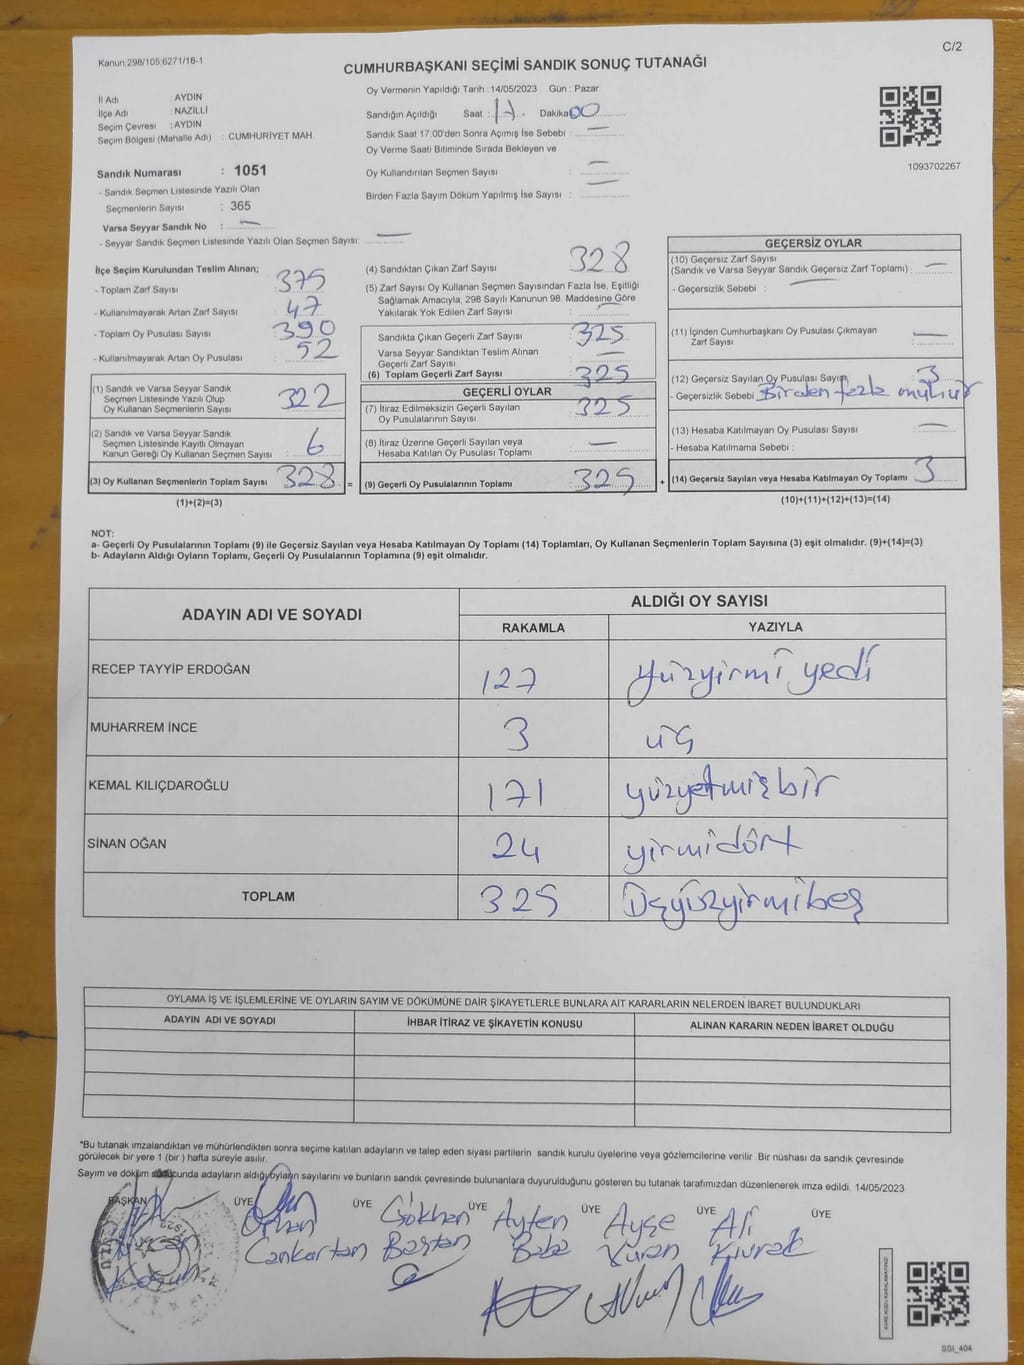 Kanun:298/105,6271/18-1
C/2
CUMHURBAŞKANI SEÇİMİ SANDIK SONUÇ TUTANAĞI
İl Adı : AYDIN
İlçe Adı : NAZİLLİ
Seçim Çevresi : AYDIN
Seçim Bölgesi (Mahalle Adı) : CUMHURİYET MAH.
Sandık Numarası : 1051
- Sandık Seçmen Listesinde Yazılı Olan
Seçmenlerin Sayısı : 365
Varsa Seyyar Sandık No : —
- Seyyar Sandık Seçmen Listesinde Yazılı Olan Seçmen Sayısı: —
Oy Vermenin Yapıldığı Tarih : 14/05/2023 Gün : Pazar
Sandığın Açıldığı Saat : 17 Dakika 00
Sandık Saat 17.00'den Sonra Açımış İse Sebebi : —
Oy Verme Saati Bitiminde Sırada Bekleyen ve
Oy Kullandırılan Seçmen Sayısı : —
Birden Fazla Sayım Döküm Yapılmış İse Sayısı : —
1093702267
İlçe Seçim Kurulundan Teslim Alınan;
- Toplam Zarf Sayısı : 375
- Kullanılmayarak Artan Zarf Sayısı : 47
- Toplam Oy Pusulası Sayısı : 390
- Kullanılmayarak Artan Oy Pusulası : 52
(1) Sandık ve Varsa Seyyar Sandık
Seçmen Listesinde Yazılı Olup
Oy Kullanan Seçmenlerin Sayısı : 322
(2) Sandık ve Varsa Seyyar Sandık
Seçmen Listesinde Kayıtlı Olmayan
Kanun Gereği Oy Kullanan Seçmen Sayısı : 6
(3) Oy Kullanan Seçmenlerin Toplam Sayısı : 328 =
(1)+(2)=(3)
(4) Sandıktan Çıkan Zarf Sayısı : 328
(5) Zarf Sayısı Oy Kullanan Seçmen Sayısından Fazla İse, Eşitliği
Sağlamak Amacıyla, 298 Sayılı Kanunun 98. Maddesine Göre
Yakılarak Yok Edilen Zarf Sayısı : —
Sandıkta Çıkan Geçerli Zarf Sayısı : 325
Varsa Seyyar Sandıktan Teslim Alınan
Geçerli Zarf Sayısı : —
(6) Toplam Geçerli Zarf Sayısı : 325
GEÇERLİ OYLAR
(7) İtiraz Edilmeksizin Geçerli Sayılan
Oy Pusulalarının Sayısı : 325
(8) İtiraz Üzerine Geçerli Sayılan veya
Hesaba Katılan Oy Pusulası Toplamı : —
(9) Geçerli Oy Pusulalarının Toplamı : 325 +
GEÇERSİZ OYLAR
(10) Geçersiz Zarf Sayısı
(Sandık ve Varsa Seyyar Sandık Geçersiz Zarf Toplamı) : —
- Geçersizlik Sebebi : —
(11) İçinden Cumhurbaşkanı Oy Pusulası Çıkmayan
Zarf Sayısı : —
(12) Geçersiz Sayılan Oy Pusulası Sayısı 3
- Geçersizlik Sebebi Birden fazla mühür
(13) Hesaba Katılmayan Oy Pusulası Sayısı : —
- Hesaba Katılmama Sebebi :
(14) Geçersiz Sayılan veya Hesaba Katılmayan Oy Toplamı : 3
(10)+(11)+(12)+(13)=(14)
NOT:
a- Geçerli Oy Pusulalarının Toplamı (9) ile Geçersiz Sayılan veya Hesaba Katılmayan Oy Toplamı (14) Toplamları, Oy Kullanan Seçmenlerin Toplam Sayısına (3) eşit olmalıdır. (9)+(14)=(3)
b- Adayların Aldığı Oyların Toplamı, Geçerli Oy Pusulalarının Toplamına (9) eşit olmalıdır.
ADAYIN ADI VE SOYADI
ALDIĞI OY SAYISI
RAKAMLA YAZIYLA
RECEP TAYYİP ERDOĞAN 127 yüzyirmi yedi
MUHARREM İNCE 3 üç
KEMAL KILIÇDAROĞLU 171 yüzyetmişbir
SİNAN OĞAN 24 yirmidört
TOPLAM 325 üçyüzyirmibeş
OYLAMA İŞ VE İŞLEMLERİNE VE OYLARIN SAYIM VE DÖKÜMÜNE DAİR ŞİKAYETLERLE BUNLARA AİT KARARLARIN NELERDEN İBARET BULUNDUKLARI
ADAYIN ADI VE SOYADI İHBAR İTİRAZ VE ŞİKAYETİN KONUSU ALINAN KARARIN NEDEN İBARET OLDUĞU
*Bu tutanak imzalandıktan ve mühürlendikten sonra seçime katılan adayların ve talep eden siyasi partilerin sandık kurulu üyelerine veya gözlemcilerine verilir. Bir nüshası da sandık çevresinde
görülecek bir yere 1 (bir ) hafta süreyle asılır.
Sayım ve döküm sonucunda adayların aldığı oyların sayılarını ve bunların sandık çevresinde bulunanlara duyurulduğunu gösteren bu tutanak tarafımızdan düzenlenerek imza edildi. 14/05/2023
BAŞKAN ÜYE ÜYE ÜYE ÜYE ÜYE ÜYE
Orhan Gökhan Ayten Ayşe Ali
Cankartan Bastan Baba Kıvrak
KARE KODU KARALAMAYINIZ
SSI_404